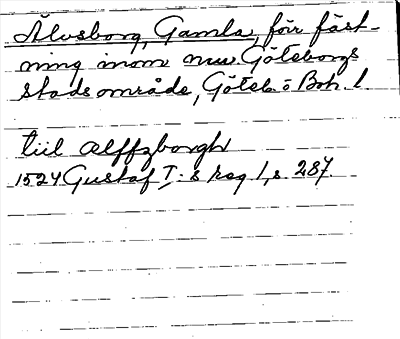 Älvsborg, Gamla, förr fäst-
ning inom nuv. Göteborgs
stadsområde, Göteb. o Boh. l.
tiil Alffzborgh
1524 Gustaf I:s reg 1, s. 287.